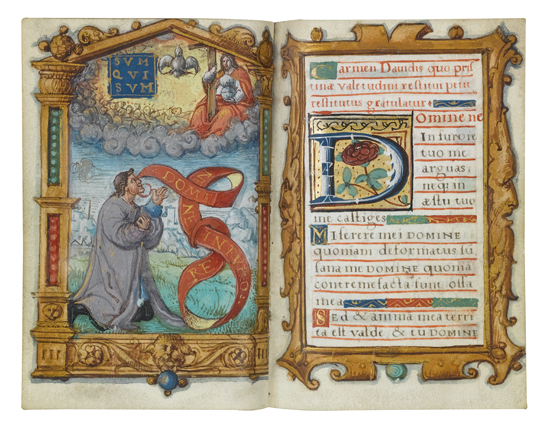 SVM
QVI
SVM
DOMI
IN FVRO
RE
Carmen Dauidis quo pris
tinæ valetudini restitui petit
restitutus gratulatur
Domine ne
In furore
tuo me
arguas,
neq in
æstu tuo
me castiges
Miserere mei DOMINE
quoniam deformatus sū
sana me DOMINE quoniā
contremefacta sunt ossa
mea
Sed & anima mea terri
ta est valde & tu DOMINE